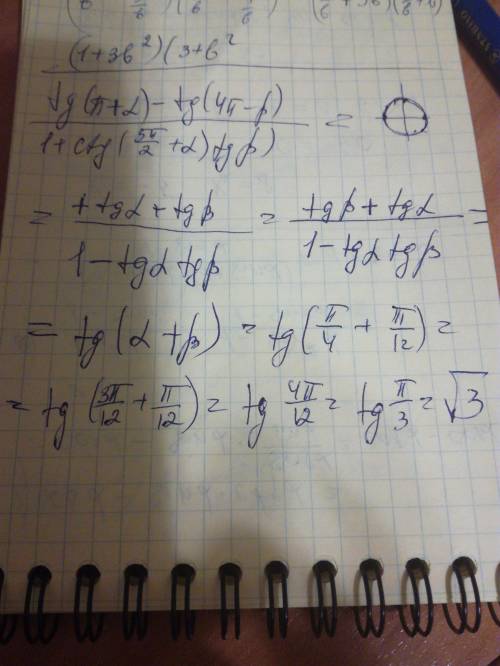 (1+3b²)(3+b²
tg(π+α)-tg(4π-β)
1+ctg(5π/2+α)tgβ) =
= + tgα+tgβ / 1-tgα tgβ = tgβ+tgα / 1-tgα tgβ =
= tg(α+β) = tg(π/4+π/12) =
= tg(3π/12+π/12) = tg 4π/12 = tg π/3 = √3